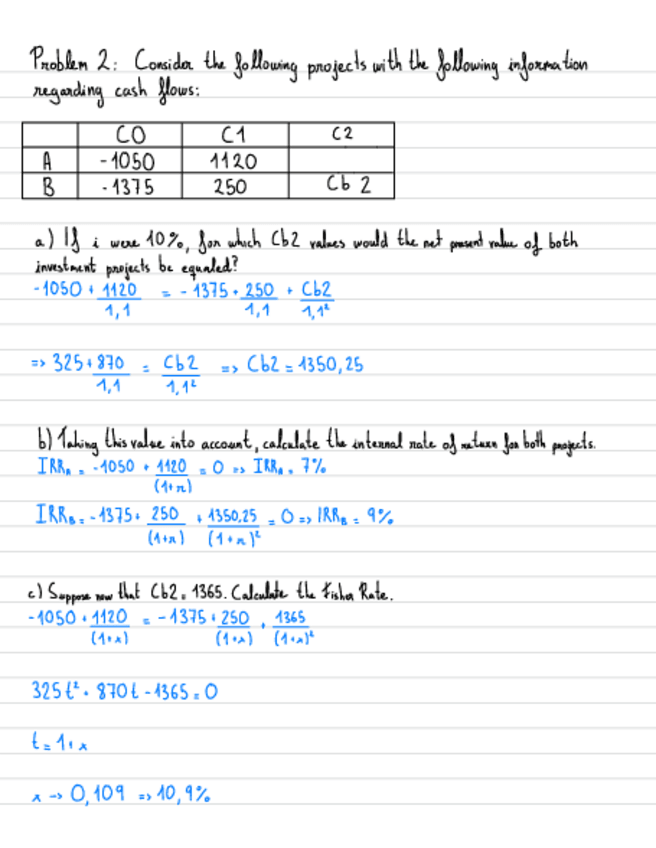 Problem 2: Consider the following projects with the following information
regarding cash flows:
C0 C1 C2
A -1050 1120
B -1375 250 Cb 2
a) If i were 10%, for which Cb2 values would the net present value of both
investment projects be equaled?
-1050 + 1120/1,1 = -1375 + 250/1,1 + Cb2/1,1²
=> 325 + 870/1,1 = Cb2/1,1² => Cb2 = 1350,25
b) Taking this value into account, calculate the internal rate of return for both projects.
IRRA = -1050 + 1120/(1+r) = 0 => IRRA = 7%
IRRB = -1375 + 250/(1+r) + 1350,25/(1+r)² = 0 => IRRB = 9%
c) Suppose now that Cb2 = 1365. Calculate the Fisher Rate.
-1050 + 1120/(1+x) = -1375 + 250/(1+x) + 1365/(1+x)²
325t² + 870t - 1365 = 0
t = 1+x
x -> 0,109 => 10,9%